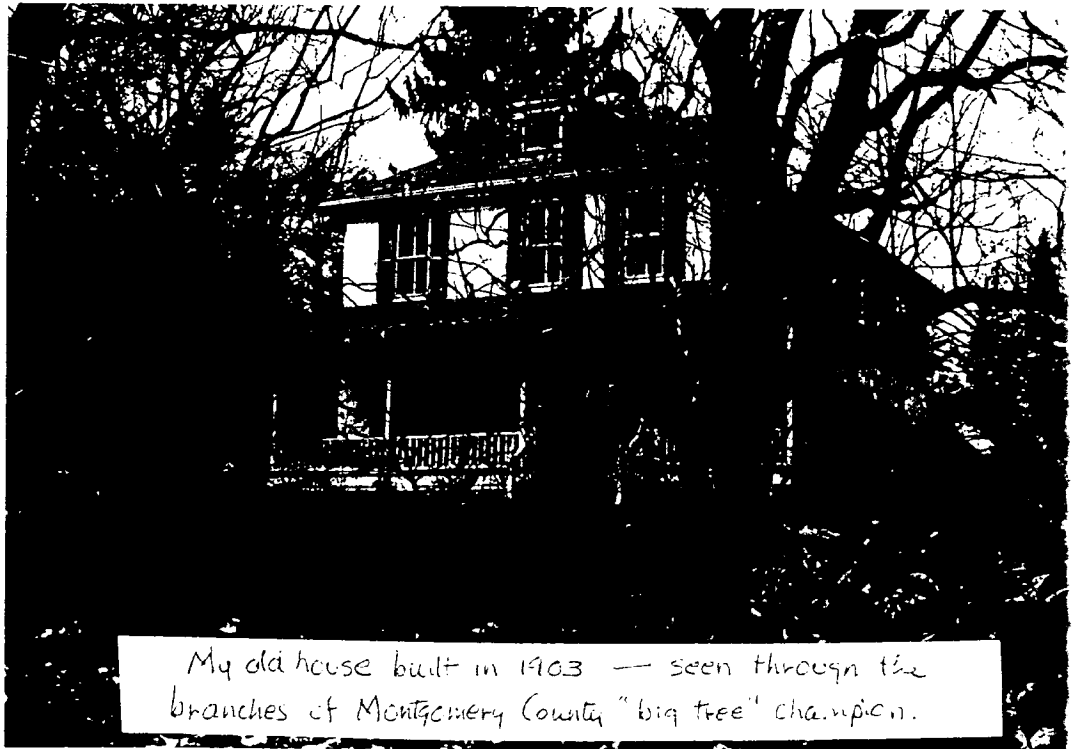 My old house built in 1903 — seen through the
branches of Montgomery County "big tree" champion.